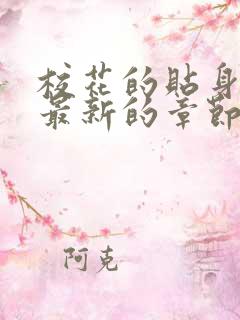 校花的貼身
最新的章節
阿克